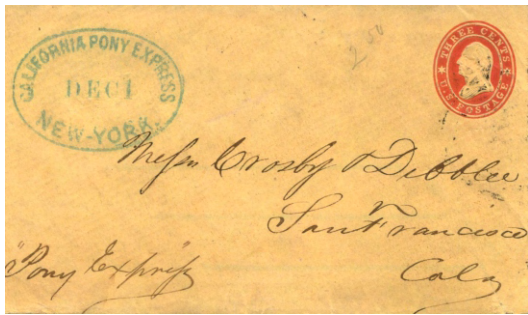 CALIFORNIA PONY EXPRESS
DEC 1
NEW-YORK.
THREE CENTS
U.S. POSTAGE
2 50
Messrs Crosby & Dibblee
San Francisco
"Pony Express"
Cala